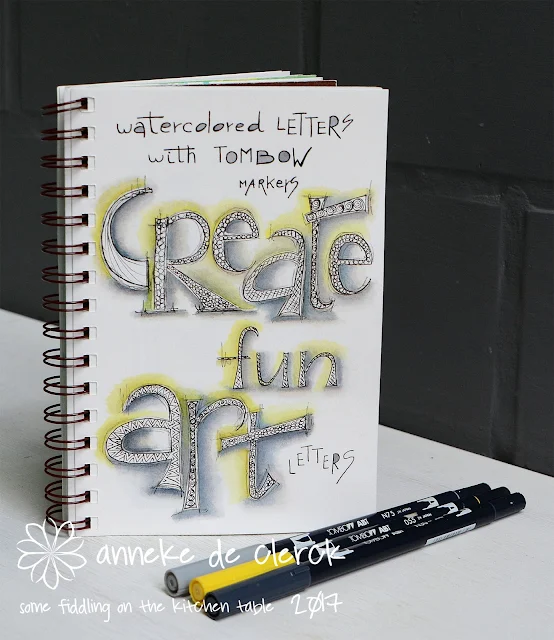 watercolored LETTERS
with TOMBOW
MARKERS
CREATE
fun
ART
LETTERS
TOMBOW ABT N75
TOMBOW ABT 055
anneke de clerck
some fiddling on the kitchen table 2017